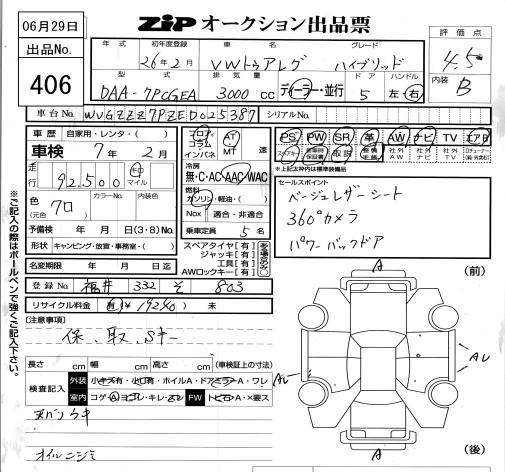 06月29日
出品No.
406
ZIP オークション出品票
評価点
4.5
内装
B
年式 初年度登録 車名 グレード
26年2月 VWトゥアレグ ハイブリッド
型式 排気量 ドア ハンドル
DAA-7PCGEA 3000cc ディーラー・並行 5 左・右
車台No. WVGZZZ7PZED025387 シリアルNo.
車歴 自家用・レンタ・( )
車検 7年2月
走行 92,500 キロ マイル
色 クロ (元色) カラーNo. 内装色
予備検 年 月 日(3・8)No.
形状 キャンピング・放置・事務室・( )
名変期限 年 月 日迄
フロア コラム インパネ AT MT 速
冷房
無・C・AC・AAC・WAC
燃料
ガソリン・軽油・( )
Nox 適合・非適合
乗車定員 5名
スペアタイヤ[有]
ジャッキ[有]
工具[有]
AWロックキー[有]
登録No. 福井 332 そ 803
リサイクル料金 有 ¥19240) 未
PS PW SR 革 AW ナビ TV エアB
取説 社外AW 社外ナビ 社外TV
※上記太枠内は標準装備品
セールスポイント
ベージュレザーシート
360°カメラ
パワーバックドア
[注意事項]
保、取、Sキー
長さ cm 幅 cm 高さ cm (車検証上の寸法)
検査記入 外装 小キズ有・小凹有・ホイルA・ドアミラーA・ワレ
室内 コゲ・A・ヨゴレ・キレ・スレ FW トビ石・A・×要ス
天バリウキ
オイルニジミ
※ご記入の際はボールペンで強くご記入下さい。
(前)
A
AL
AL
A
(後)